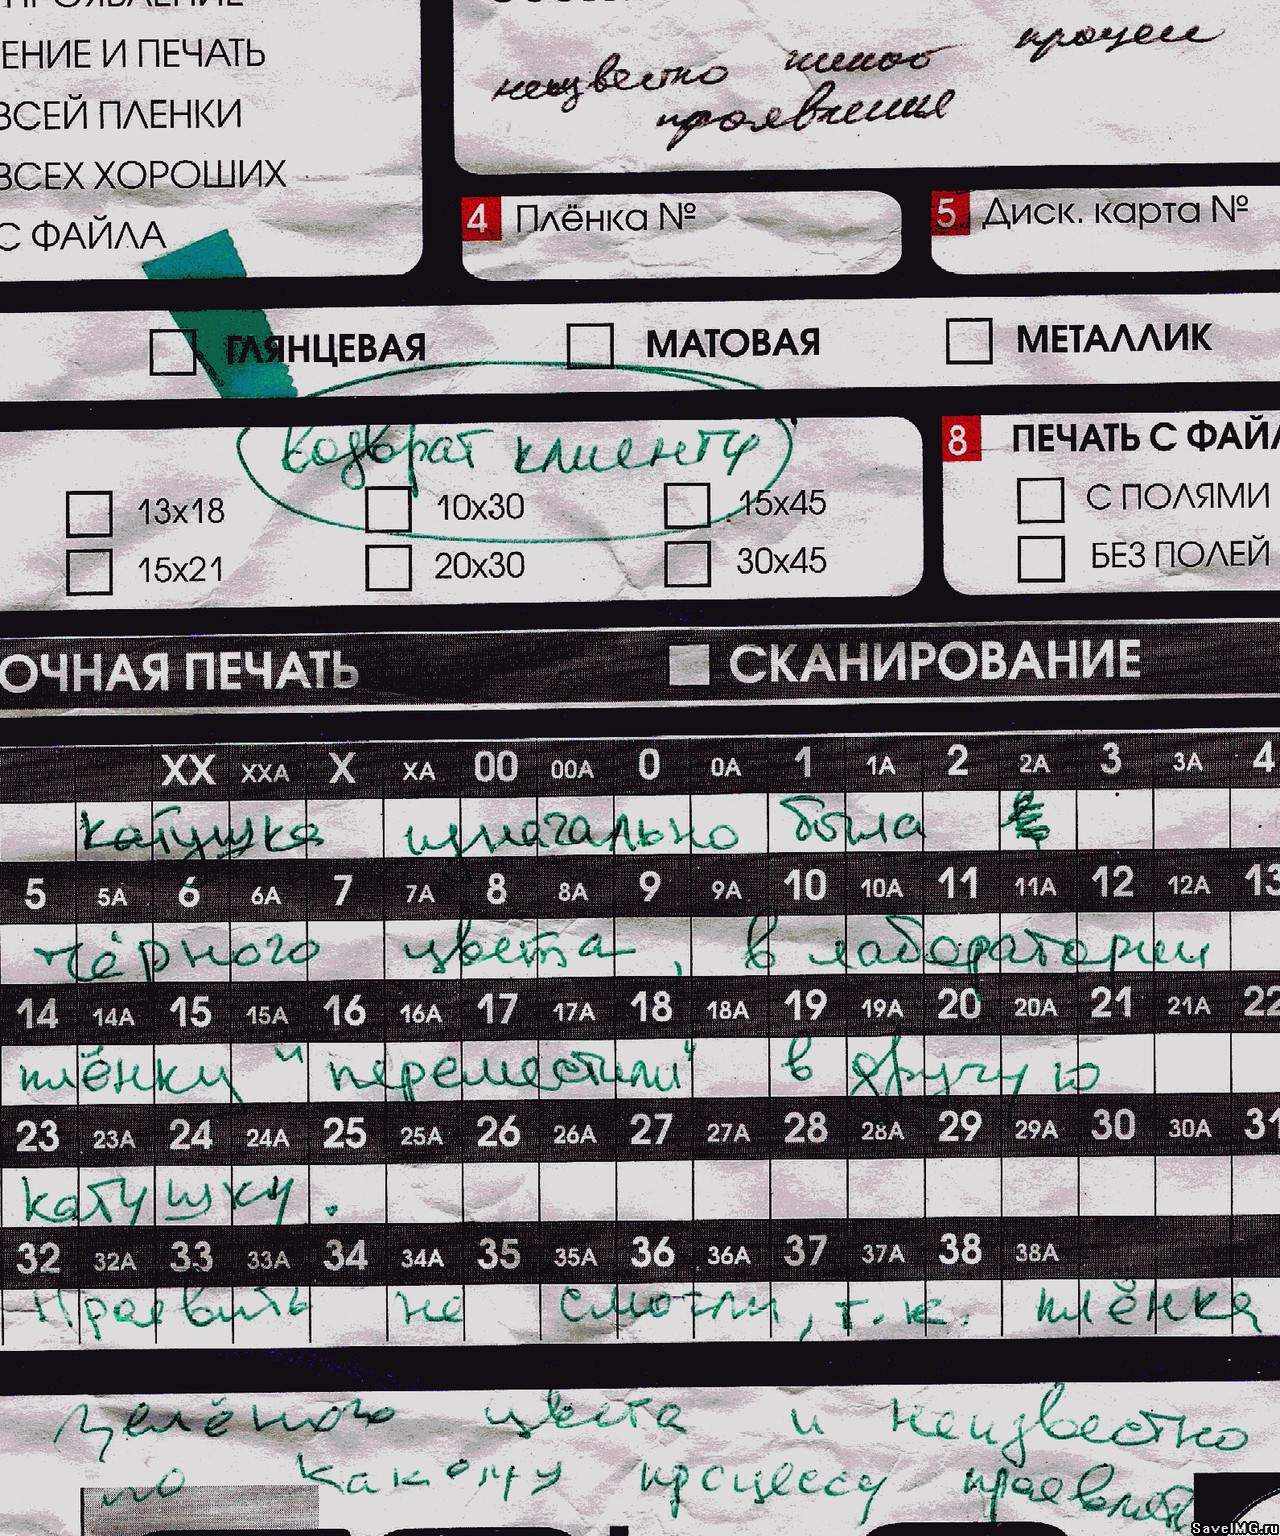 ПРОЯВЛЕНИЕ
ЕНИЕ И ПЕЧАТЬ
ВСЕЙ ПЛЕНКИ
ВСЕХ ХОРОШИХ
С ФАЙЛА
неизвестно процесс
проявления
4 Плёнка №
5 Диск. карта №
ГЛЯНЦЕВАЯ МАТОВАЯ МЕТАЛЛИК
Возврат клиенту
13x18 10x30 15x45
15x21 20x30 30x45
8 ПЕЧАТЬ С ФАЙЛ
С ПОЛЯМИ
БЕЗ ПОЛЕЙ
ОЧНАЯ ПЕЧАТЬ СКАНИРОВАНИЕ
XX XXA X XA 00 00A 0 0A 1 1A 2 2A 3 3A 4
катушка изначально была
5 5A 6 6A 7 7A 8 8A 9 9A 10 10A 11 11A 12 12A 13
чёрного цвета, в лаборатории
14 14A 15 15A 16 16A 17 17A 18 18A 19 19A 20 20A 21 21A 22
плёнку "переместили" в другую
23 23A 24 24A 25 25A 26 26A 27 27A 28 28A 29 29A 30 30A 31
катушку.
32 32A 33 33A 34 34A 35 35A 36 36A 37 37A 38 38A
Проявить не смогли, т.к. плёнка
зелёного цвета и неизвестно
по какому процессу проявлять
SaveIMG.ru